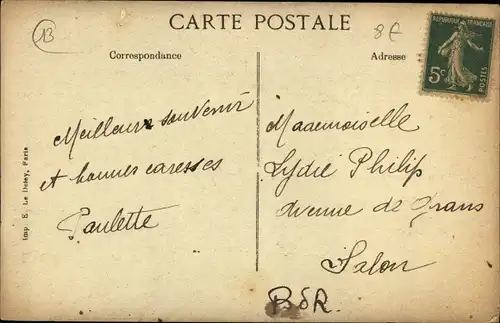 13
CARTE POSTALE
8€
Correspondance
Adresse
REPUBLIQUE FRANÇAISE
5c
POSTES
Meilleur souvenir
et bonnes caresses
Paulette
Mademoiselle
Lydie Philip
Avenue de Grans
Salon
BdR.
Imp. E. Le Deley, Paris